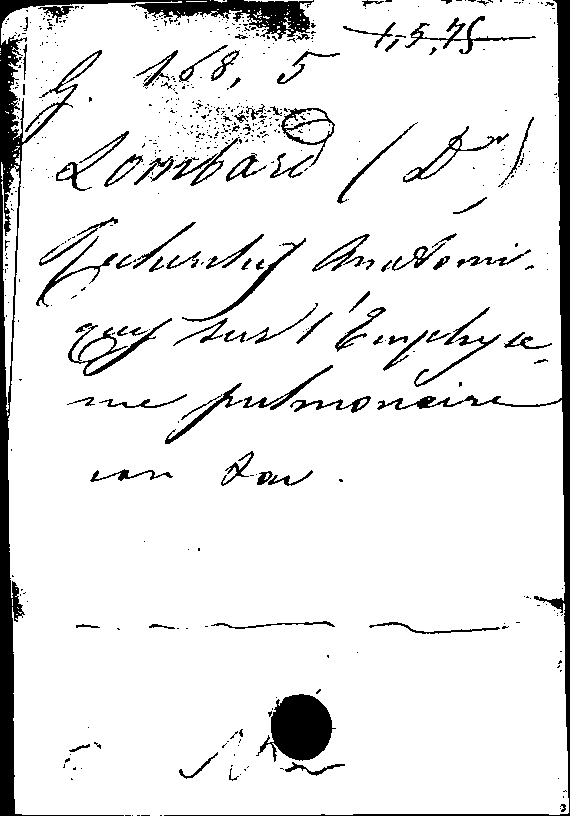 1,5,75
G. 168, 5
Lombard (Dr)
Recherches Anatomi-
ques sur l'Emphyse-
me pulmonaire